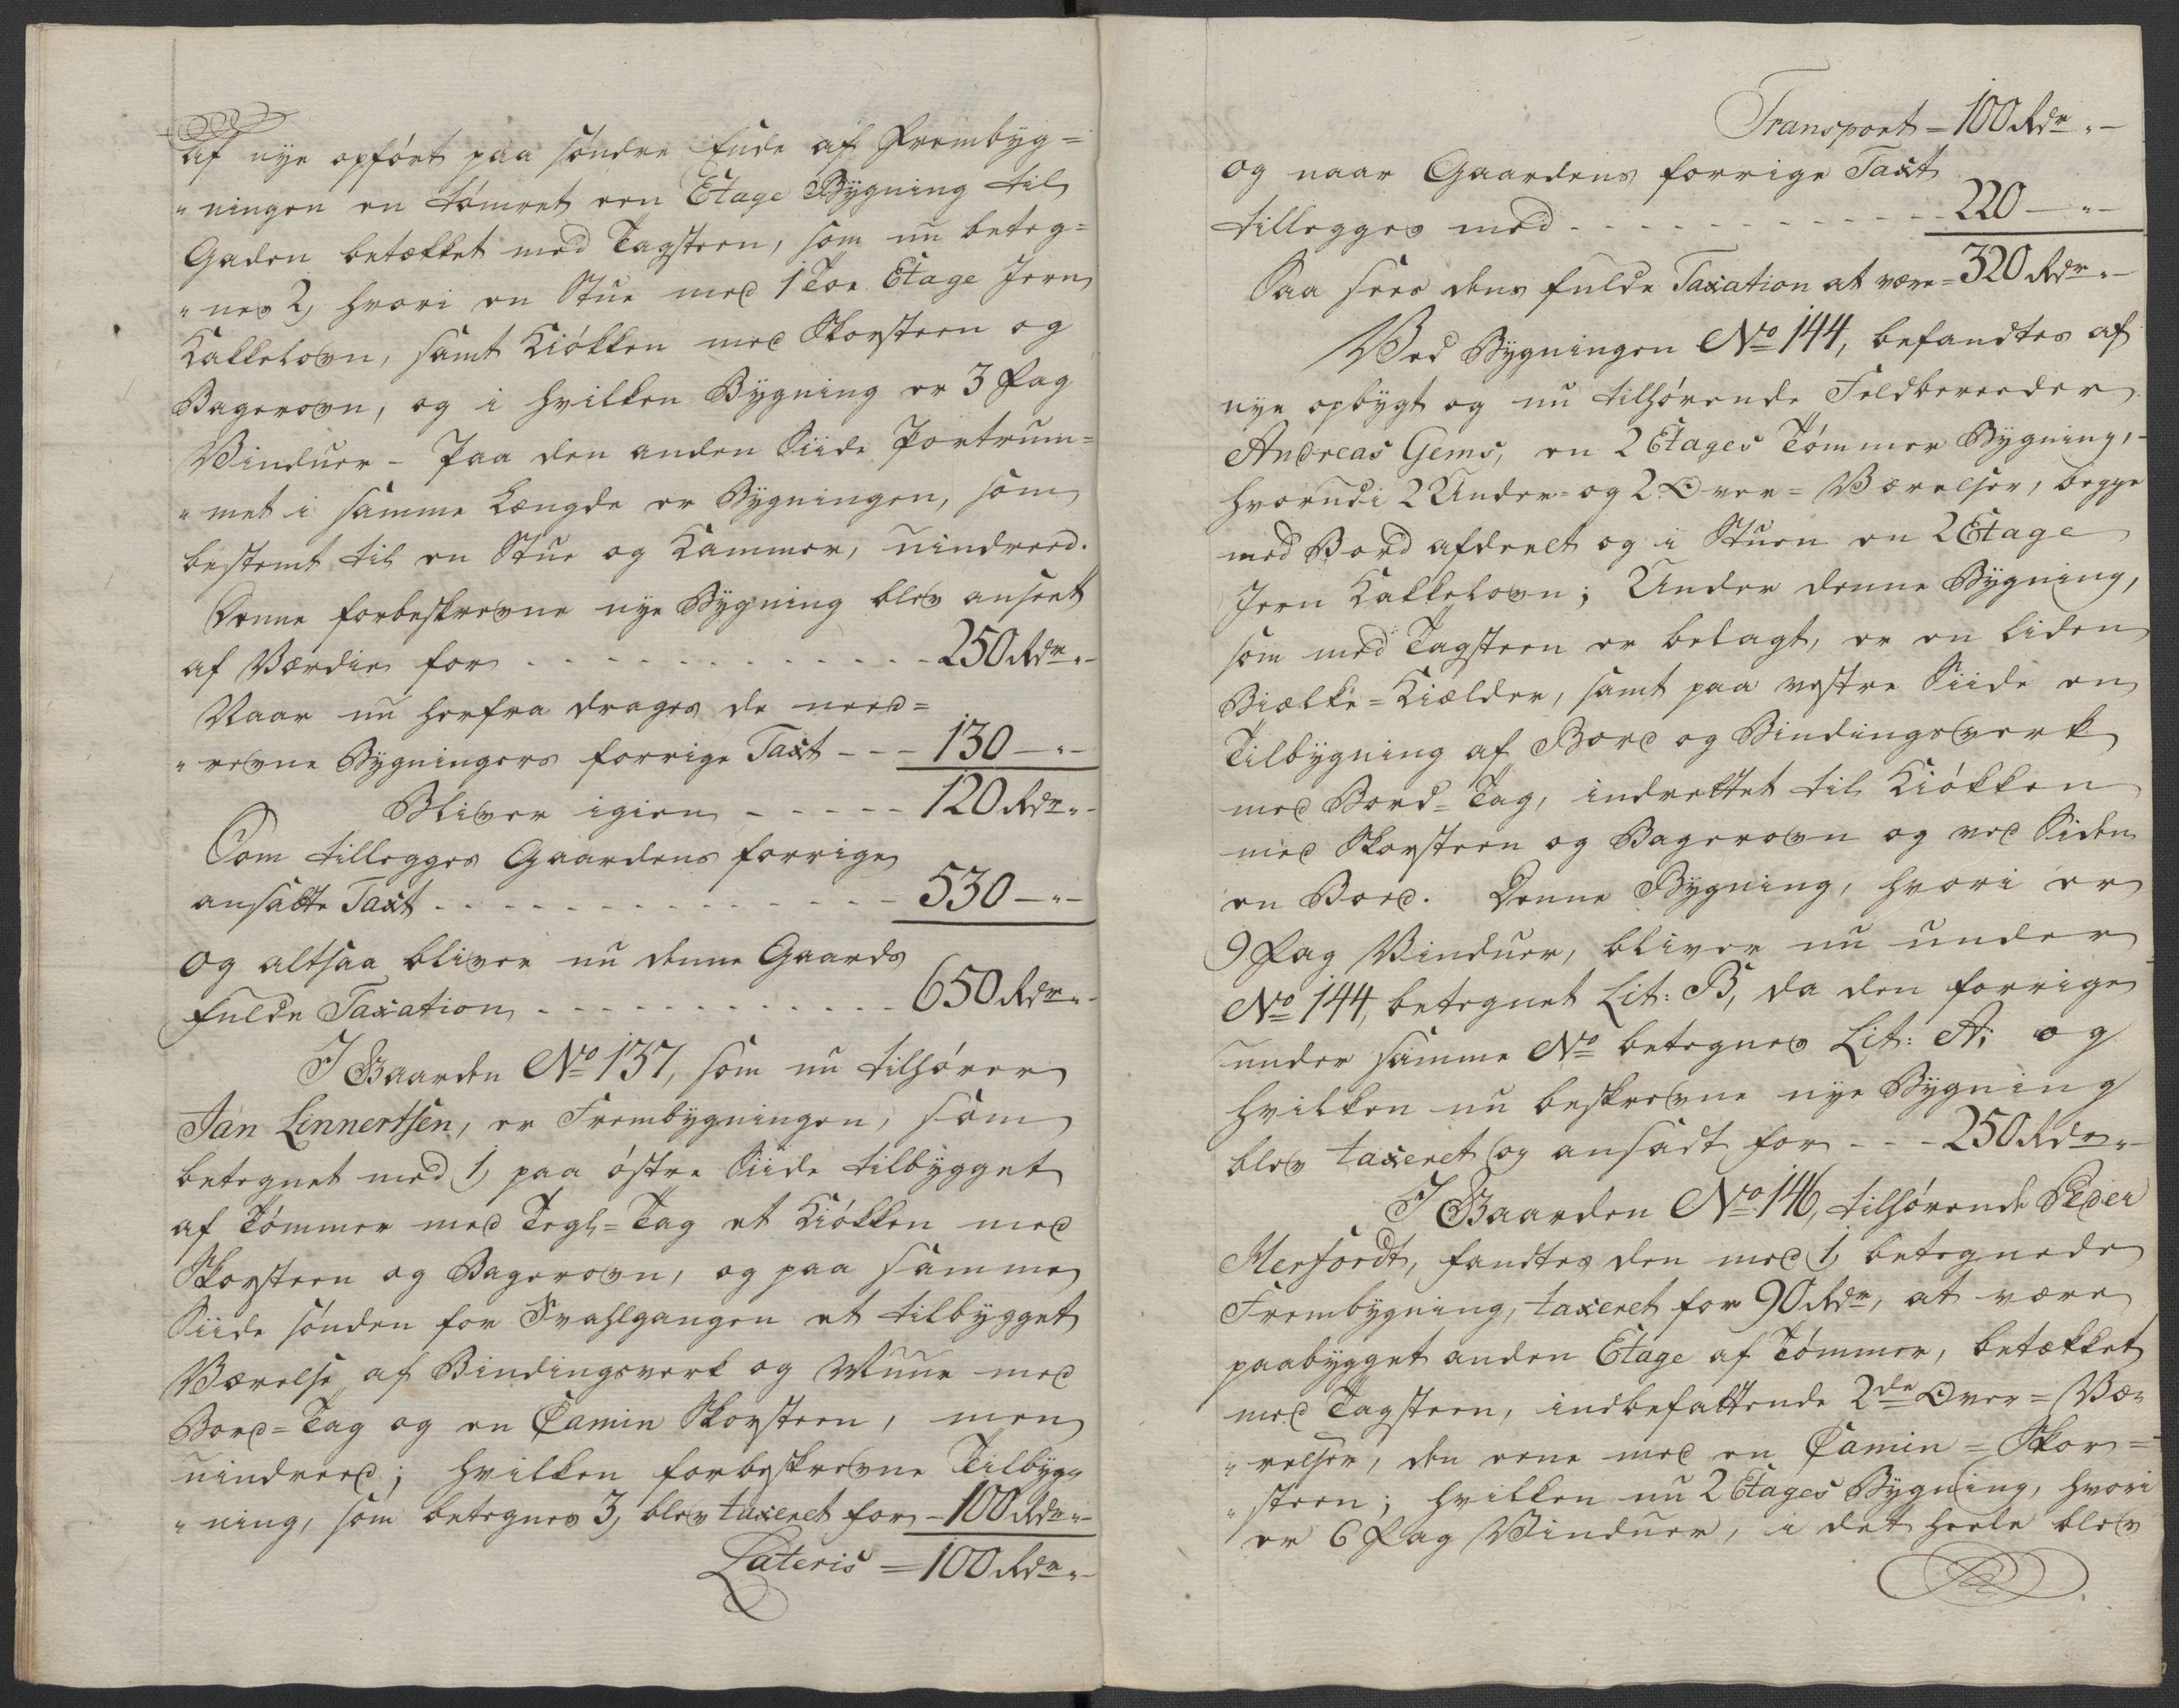 af nye opført paa søndre Ende af Frembyg=
"ningen en tømret een Etage Bÿgning til
Gaden betækket med Tagsteen, som nu beteg=
"nes 2, hvori en Stue med 1 Toe Etage Jern
Kakkelovn, samt Kiøkken med Skorsteen og
Bagerovn, og i hvilken Bÿgning er 3 Fag
Vinduer - Paa den anden Siide Portrum=
"met i samme Længde er Bÿgningen, som
bestemt til en Stue og Kammer, uindreed.
Denne forbeskrevne nye Bÿgning blev anseet
af Værdie for - - - - - - - - - - - - 250 Rdr "-
Naar nu herfra drages de need=
"revne Bÿgningers forrige Taxt - - - 130 -"-
Bliver igien - - - - - 120 Rdr "-
Som tillegges Gaardens forrige
ansatte Taxt - - - - - - - - - - - - - 530 -"-
og altsaa bliver nu denne Gaards
fulde Taxation - - - - - - - - - - - 650 Rdr "-
I Gaarden No 137, som nu tilhører
Jan Linnertsen, er Frembygningen, som
betegnet med 1, paa østre Siide tilbÿgget
af Tømmer med Tegl=Tag et Kiøkken med
Skorsteen og Bagerovn, og paa samme
Siide sønden for Svahlgangen et tilbÿgget
Værelse af Bindingsverk og Muur med
Bord=Tag og en Camin Skorsteen, men
uindreed; hvilken forbeskrevne Tilbÿg
"ning, som betegnes 3, blev taxeret for - 100 Rdr "-
Lateris = 100 Rdr "-
Transport = 100 Rdr "-
og naar Gaardens forrige Taxt
tillegges med - - - - - - - - - - - 220 -"-
Saa sees dens fulde Taxation at være = 320 Rdr "-
Ved Bÿgningen No 144, befandtes af
nye opbÿgt og nu tilhørende Feldbereeder
Andreas Gems, en 2 Etages Tømmer Bÿgning,
hvorudi 2 Under= og 2 Over=Værelser, begge
med Bord afdeelt og i Stuen en 2 Etage
Jern Kakkelovn; Under denne Bÿgning,
som med Tagsteen er belagt, er en liden
Bielke=Kielder, samt paa vestre Siide en
Tilbÿgning af Bord og Bindingsverk
med Bord=Tag, indrettet til Kiøkken
med Skorsteen og Bagerovn og ved Siden
en Bord. Denne Bÿgning, hvori er
9 Fag Vinduer, bliver nu under
No 144, betegnet Lit: B, da den forrige
under samme No betegnes Lit: A; og
hvilken nu beskrevne nye Bÿgning
blev taxeret og ansadt for - - - 250 Rdr "-
I Gaarden No 146, tilhørende Peder
Herfordt, fandtes den med 1, betegnede
Frembÿgning, taxeret for 90 Rdr, at være
paabÿgget anden Etage af Tømmer, betækket
med Tagsteen, indbefattende 2de Over=Væ=
"relser, den eene med en Camin=Skor=
"steen; hvilken nu 2 Etages Bÿgning, hvori
er 6 Fag Vinduer, i det heele blev